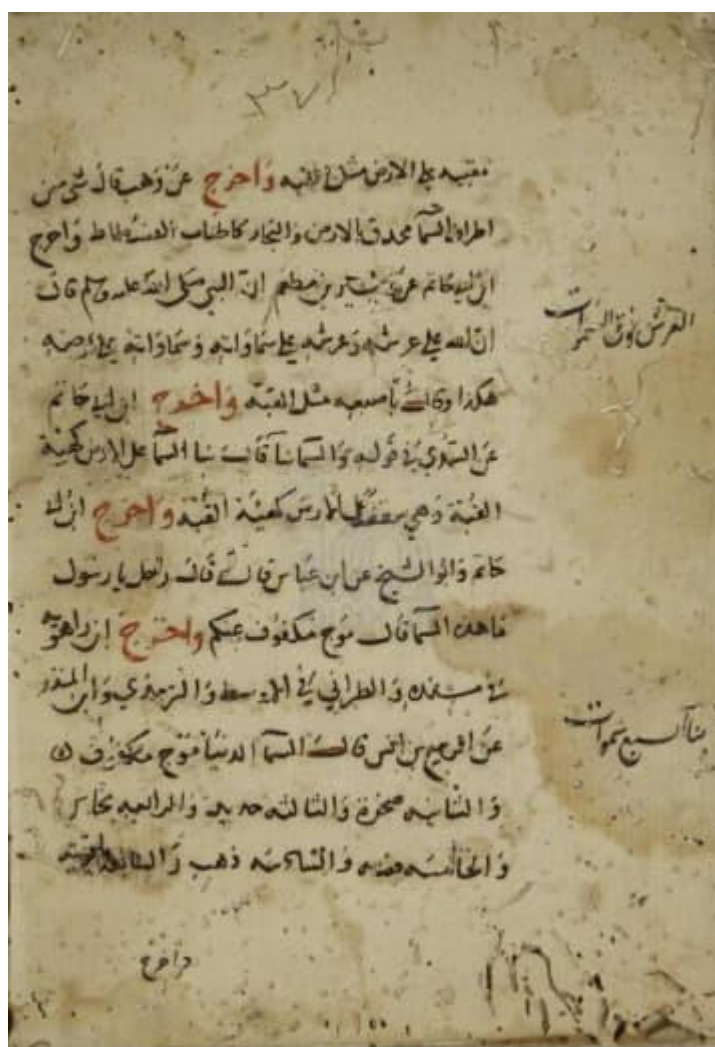 مقبيه على الارض مثل القبه واخرج عن وهب قال شى من
اطراف السما محدق بالارض والبحار كاطناب الفسطاط واخرج
ابن ابي حاتم عن بن مطعم ان النبي صلى الله عليه وسلم قال
ان الله على عرشه وعرشه على سماواته وسماواته على ارضه
هكذا وقال باصبعه مثل القبة واخرج ابن ابي حاتم
عن السدي في قوله والسما بنا قال بنا السما على الارض كهيئة
القبة وهي سقف على الارض كهيئة القبة واخرج ابن ابي
حاتم وابو الشيخ عن ابن عباس قال قال رجل يا رسول
ما هذه السما قال موج مكفوف عنكم واخرج ابن راهويه
في مسنده والطبراني في الاوسط وابن المنذر
عن الربيع بن انس قال السما الدنيا موج مكفوف
والثانيه صخرة والثالثه حديد والرابعه نحاس
والخامسه فضه والسادسه ذهب والسابعه
واخرج
العرش فوق السموات
بنا السبع سموات